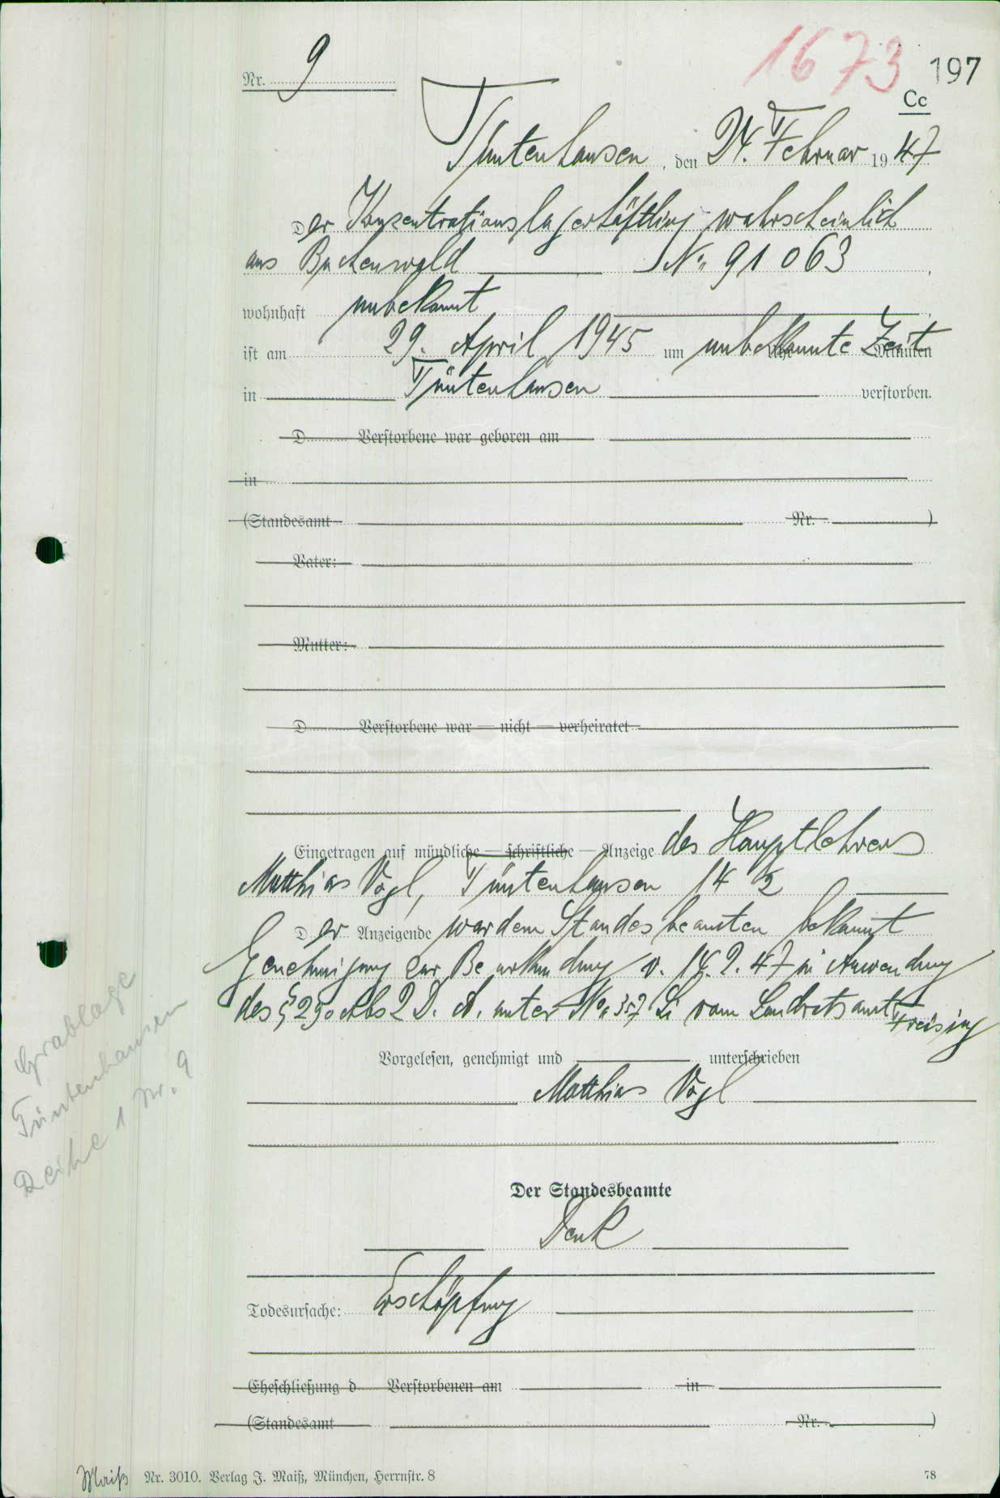 1673
197
Cc
Nr. 9
Tüntenhausen, den 24. Februar 1947
Der Konzentrationslagerhäftling wahrscheinlich
aus Buchenwald Nr. 91063
wohnhaft unbekannt
ist am 29. April 1945 um unbekannte Zeit Uhr Minuten
in Tüntenhausen verstorben.
D Verstorbene war geboren am
in
(Standesamt Nr. )
Vater:
Mutter:
D Verstorbene war — nicht — verheiratet
Eingetragen auf mündliche — schriftliche — Anzeige des Hauptlehrers
Matthias Vogl, Tüntenhausen 14 1/2
Der Anzeigende war dem Standesbeamten bekannt
Genehmigung zur Beurkundung v. 14.2.47 in Anwendung
des § 29 Abs 2 D. A. unter Nr. 357 vom Landratsamt Freising
Vorgelesen, genehmigt und unterschrieben
Matthias Vogl
Der Standesbeamte
Denk
Todesursache: Erschöpfung
Eheschließung d Verstorbenen am in
(Standesamt Nr. )
Grablage
Tüntenhausen
Reihe 1 Nr. 9
Maiß Nr. 3010. Verlag J. Maiß, München, Herrnstr. 8
78